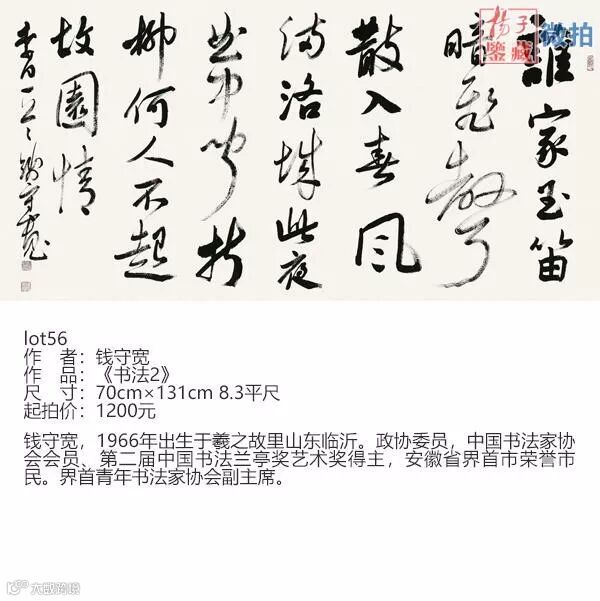 誰家玉笛
暗飛聲
散入春風
滿洛城此夜
曲中聞折
柳何人不起
故園情
李白 錢守寬
揚子鑒藏
微拍
lot56
作 者：钱守宽
作 品：《书法2》
尺 寸：70cm×131cm 8.3平尺
起拍价：1200元
钱守宽，1966年出生于羲之故里山东临沂。政协委员，中国书法家协
会会员、第二届中国书法兰亭奖艺术奖得主，安徽省界首市荣誉市
民。界首青年书法家协会副主席。
大数跨境